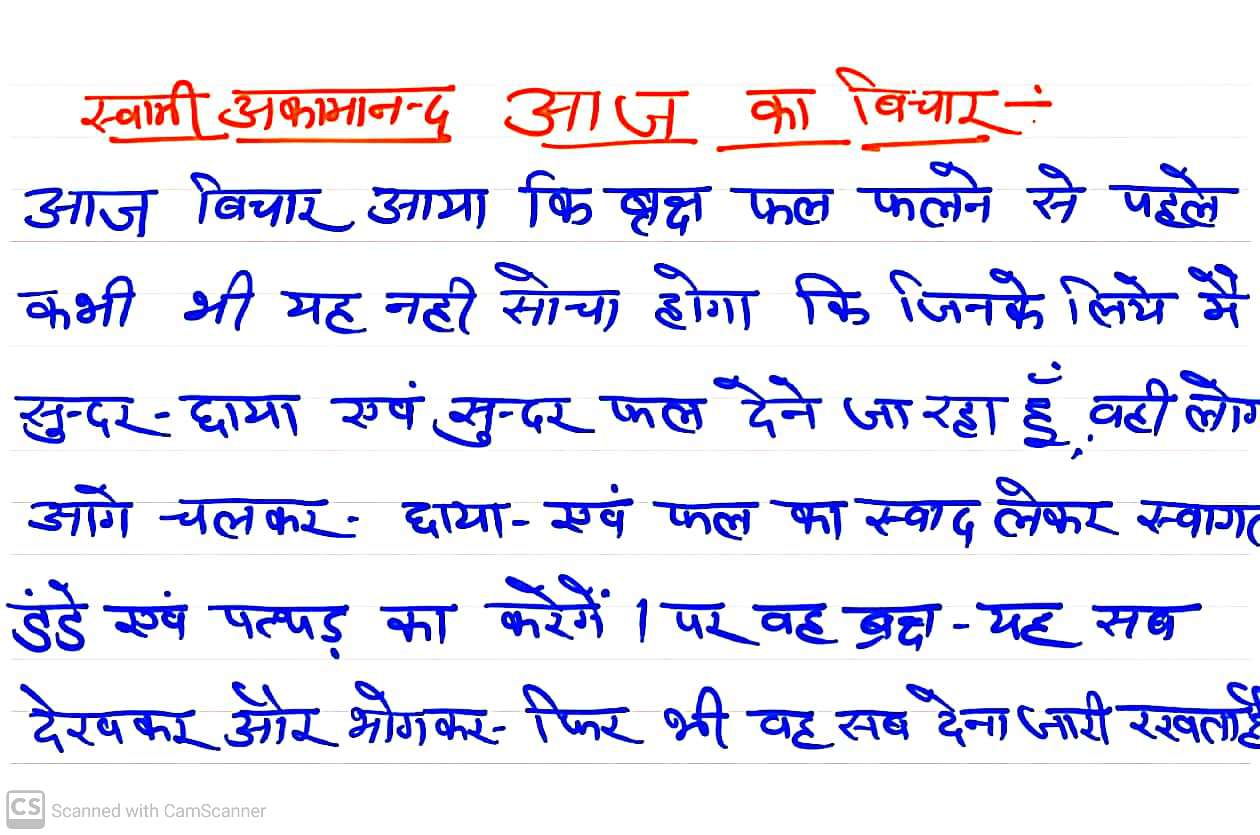 स्वामी अकामानन्द आज का विचार ÷
आज विचार आया कि बृक्ष फल फलेने से पहले
कभी भी यह नही सोचा होगा कि जिनके लिये मै
सुन्दर - छाया एवं सुन्दर फल देने जा रहा हूँ, वही लोग
आगे चलकर - छाया - एवं फल का स्वाद लेकर स्वागत
डंडे एवं पत्थड़ का करेगें । पर वह ब्रक्ष - यह सब
देखकर और भोगकर - फिर भी वह सब देना जारी रखता है
CS Scanned with CamScanner